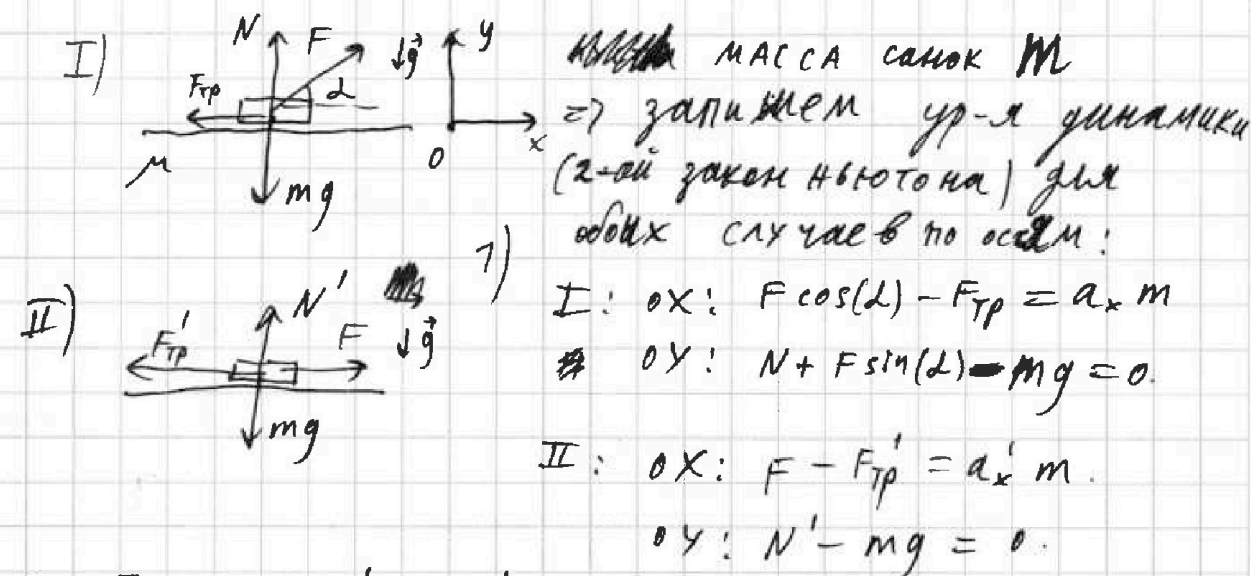 I) N F ↓g⃗ y
Fтр α
μ mg 0 x
масса санок m
=> запишем ур-я динамики
(2-ой закон Ньютона) для
обоих случаев по осям:
1)
I: OX: F cos(α) - Fтр = aₓ m
OY: N + F sin(α) - mg = 0.
II) N' ↓g⃗
F'тр F
mg
II: OX: F - F'тр = a'ₓ m.
OY: N' - mg = 0.